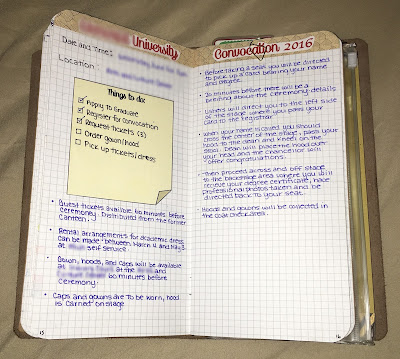 University
Date and Time:
Location:
Things to do:
Apply to Graduate
Register for Convocation
Request tickets (3)
Order gown/hood
Pick up tickets/dress
Guest tickets available 60 minutes before
ceremony. Distributed from the former
Canteen.
Rental arrangements for academic dress
can be made between March 4 and
at self service
Gown, hoods, and caps will be available
at at the and
60 minutes before
ceremony
Caps and gowns are to be worn, hood
is carried on stage
15
Convocation 2016
Before taking a seat you will be directed
to pick up a card bearing your name
and degree.
30 minutes before there will be a
briefing about the ceremony details
Ushers will direct you to the left side
of the stage where you pass your
card to the Registrar
When your name is called you should
cross the center of the stage, pass your
hood to the dean and kneel on the
stool. Dean will place the hood over
your head and the chancellor will
offer congratulations.
Then proceed across and off stage
to the area where you will
receive your degree certificate, have
professional photos taken and be
directed back to your seat.
Hoods and gowns will be collected in
the coat check area.
16